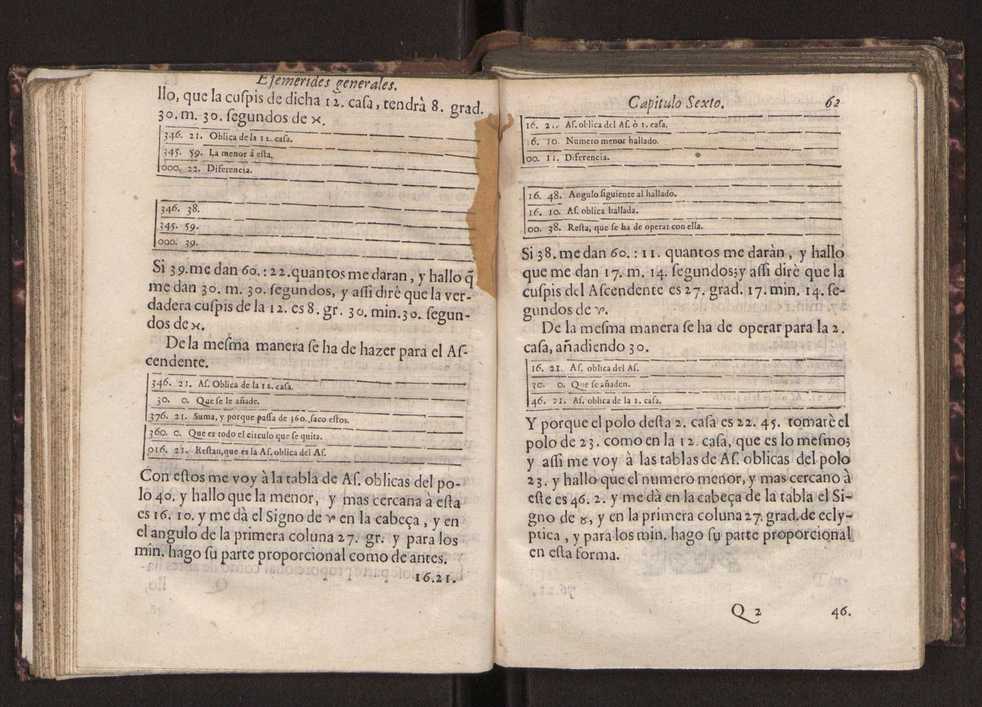 Efemerides generales.
llo, que la cuſpis de dicha 12. caſa, tendrà 8. grad.
30. m. 30. ſegundos de ♓.
346. 21. Oblica de la 12. caſa.
345. 59. La menor á eſta.
000. 22. Diferencia.
346. 38.
345. 59.
000. 39.
Si 39. me dan 60. : 22. quantos me daran, y hallo q̃
me dan 30. m. 30. ſegundos, y aſſi dirè que la ver-
dadera cuſpis de la 12. es 8. gr. 30. min. 30. ſegun-
dos de ♓.
De la meſma manera ſe ha de hazer para el Aſ-
cendente.
346. 21. Aſ. Oblica de la 12. caſa.
30. 0. Que ſe le añade.
376. 21. Suma, y porque paſſa de 360. ſaco eſtos.
360. 0. Que es todo el circulo que ſe quita.
016. 21. Reſtan, que es la Aſ. oblica del Aſ.
Con eſtos me voy à la tabla de Aſ. oblicas del po-
lo 40. y hallo que la menor, y mas cercana à eſta
es 16. 10. y me dà el Signo de ♈ en la cabeça, y en
el angulo de la primera coluna 27. gr. y para los
min. hago ſu parte proporcional como de antes.
16. 21.
Capitulo Sexto. 62
16. 21. Aſ. oblica del Aſ. ò 1. caſa.
16. 10. Numero menor hallado.
00. 11. Diferencia.
16. 48. Angulo ſiguiente al hallado.
16. 10. Aſ. oblica hallada.
00. 38. Reſta, que ſe ha de operar con ella.
Si 38. me dan 60. : 11. quantos me daràn, y hallo
que me dan 17. m. 14. ſegundos; y aſſi dirè que la
cuſpis del Aſcendente es 27. grad. 17. min. 14. ſe-
gundos de ♈.
De la meſma manera ſe ha de operar para la 2.
caſa, añadiendo 30.
16. 21. Aſ. oblica del Aſ.
30. 0. Que ſe añaden.
46. 21. Aſ. oblica de la 2. caſa.
Y porque el polo deſta 2. caſa es 22. 45. tomarè el
polo de 23. como en la 12. caſa, que es lo meſmo;
y aſſi me voy à las tablas de Aſ. oblicas del polo
23. y hallo que el numero menor, y mas cercano à
eſte es 46. 2. y me dà en la cabeça de la tabla el Si-
gno de ♉, y en la primera coluna 27. grad. de ecly-
ptica, y para los min. hago ſu parte proporcional
en eſta forma.
Q 2 46.